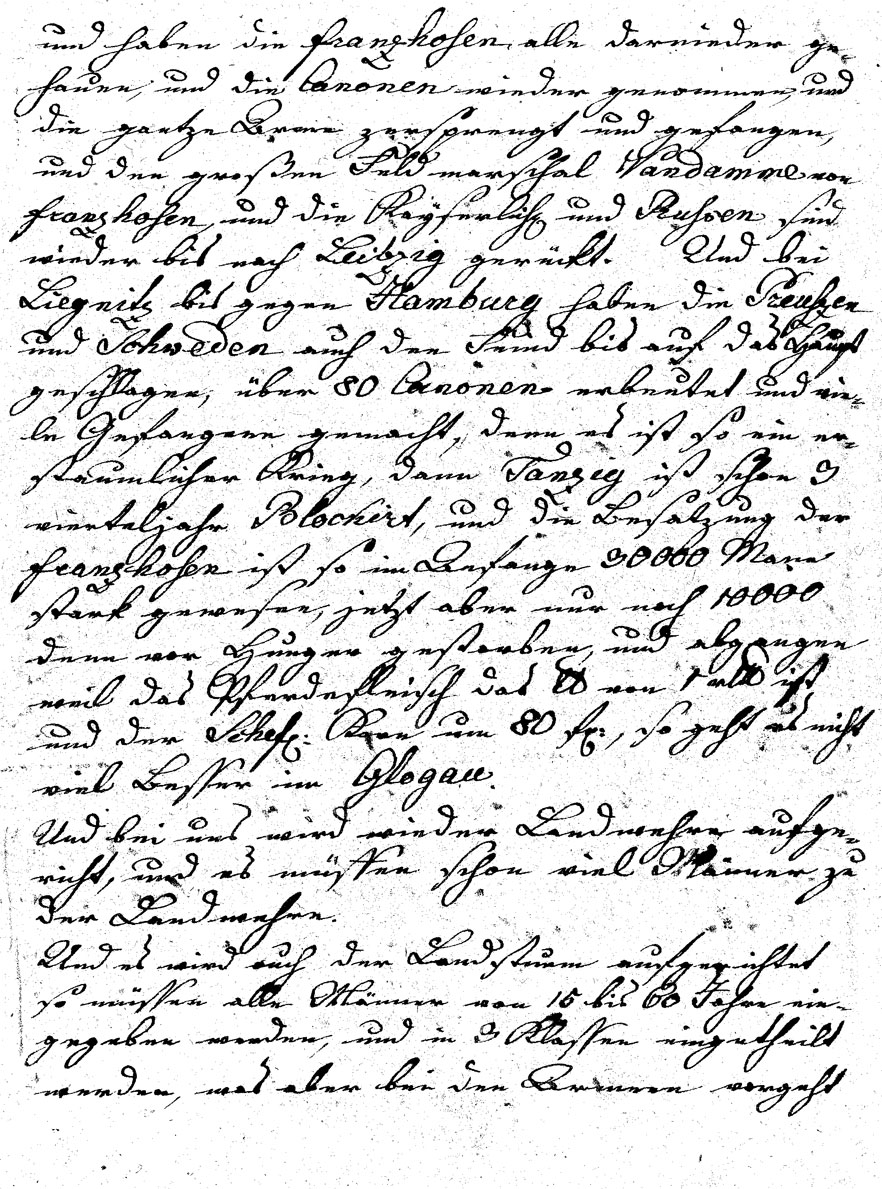 und haben die franzhosen, alle darnieder ge-
hauen, und die Canonen wieder genommen, und
die gantze Armee zersprengt und gefangen,
und den großen Feldmarschal Vandamme von
franzhosen, und die Kayserlich und Rußen sind
wieder bis nach Leibzig gerückt. Und bei
Liegnitz bis gegen Hamburg haben die Preußen
und Schweden auch den Feind bis auf das Haupt
geschlagen, über 80 Canonen erbeutet und vie-
le Gefangene gemacht, denn es ist so ein er-
staunlicher Krieg, dann Danzig ist schon 3
vierteljahr Blockirt, und die Besatzung der
franzhosen ist so im Anfange 30000 Mann
stark gewesen, jetzt aber nur noch 10000
denn vor Hunger gestorben, und abgangen
weil das Pferdefleisch das ℔ von 1 rtl ist
und der Schef: Korn um 80 fx:, so geht es nicht
viel Besser im Glogau.
Und bei uns wird wieder Landwehre aufge-
richt, und es müssen schon viel Männer zu
der Landwehre.
Und es wird auch der Landsturm aufgerichtet
so müssen alle Männer von 15 bis 60 Jahre ein-
gegeben werden, und in 3 Klassen eingetheilt
werden, was aber bei den Armeen vorgeht